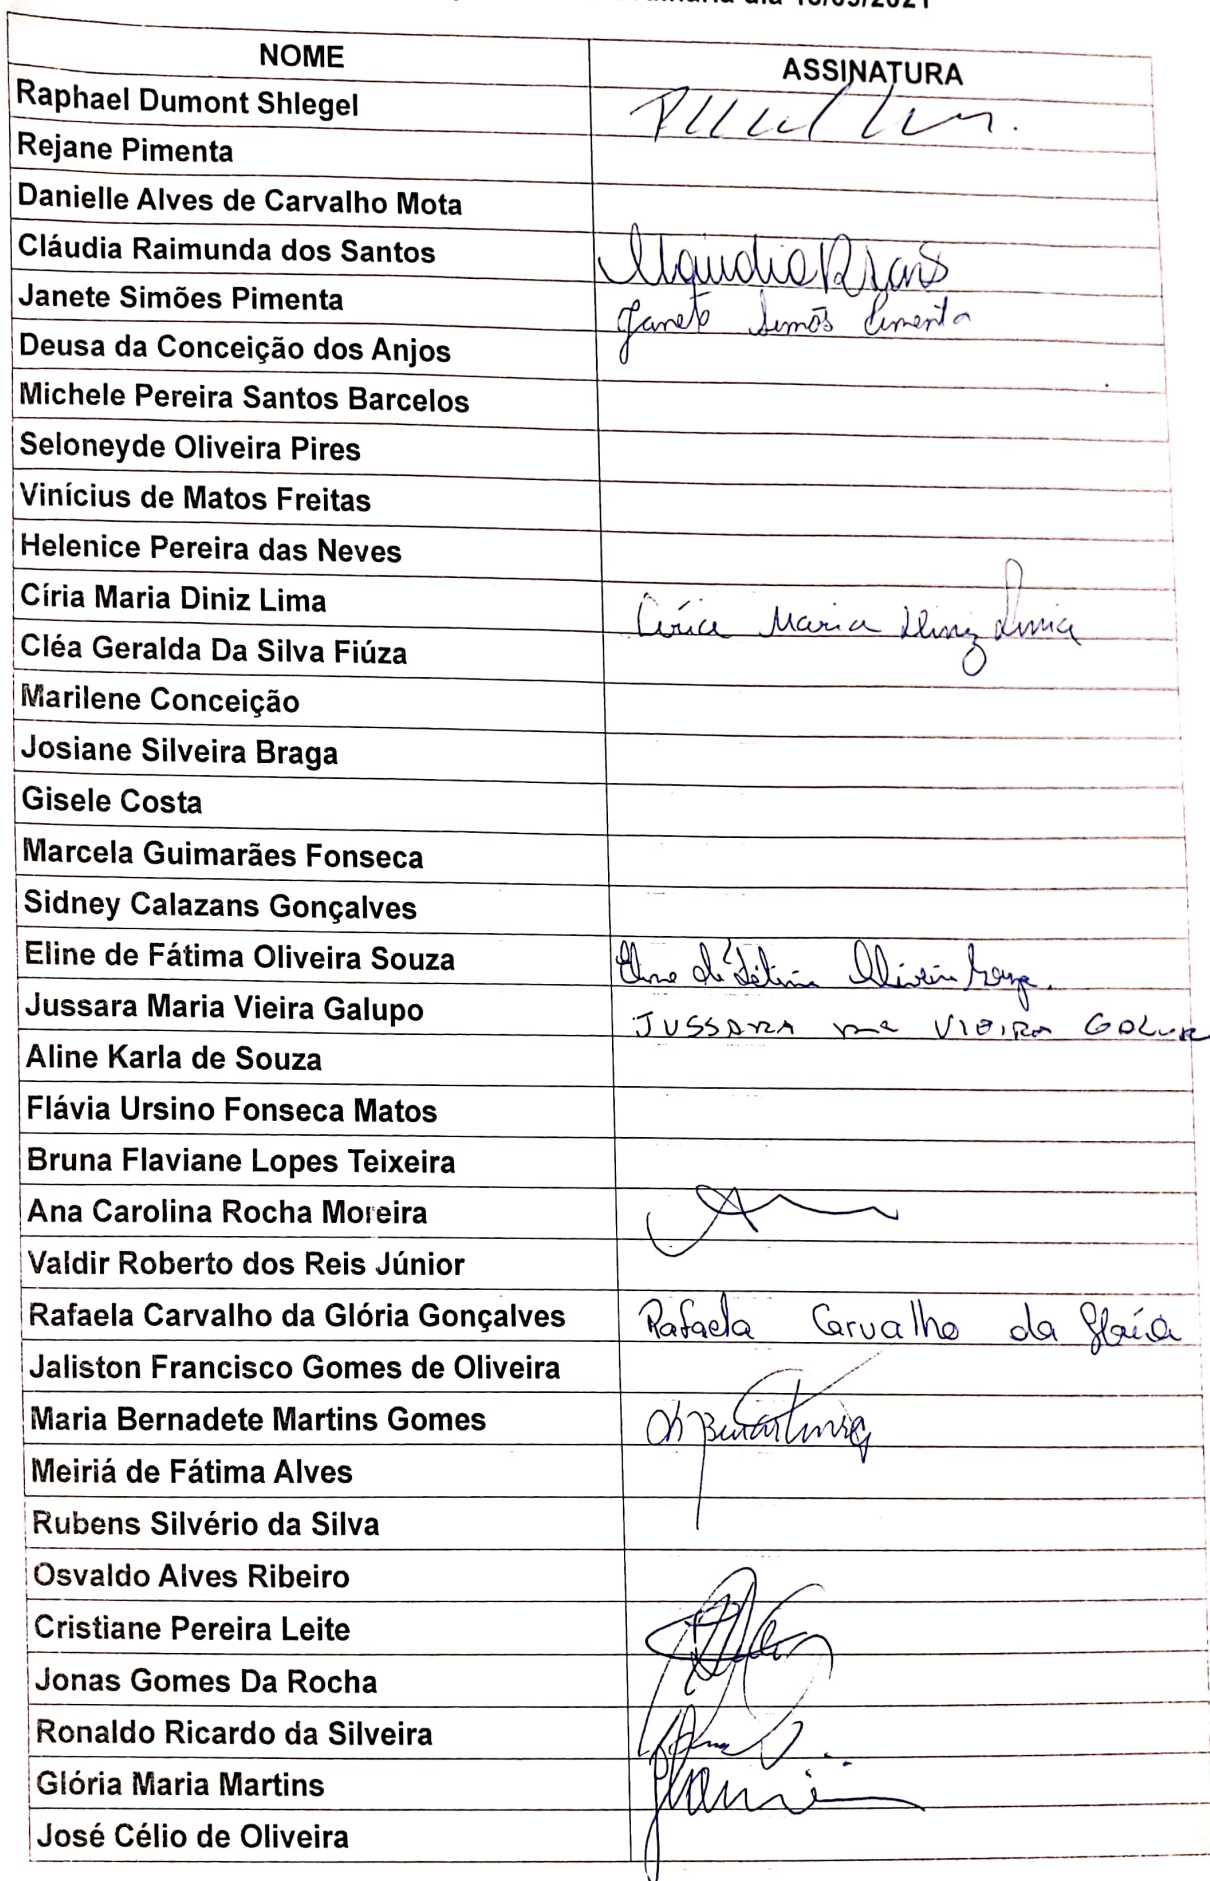 dia
NOME ASSINATURA
Raphael Dumont Shlegel
Rejane Pimenta
Danielle Alves de Carvalho Mota
Cláudia Raimunda dos Santos
Janete Simões Pimenta Janete Simões Pimenta
Deusa da Conceição dos Anjos
Michele Pereira Santos Barcelos
Seloneyde Oliveira Pires
Vinícius de Matos Freitas
Helenice Pereira das Neves
Círia Maria Diniz Lima Círia Maria Diniz Lima
Cléa Geralda Da Silva Fiúza
Marilene Conceição
Josiane Silveira Braga
Gisele Costa
Marcela Guimarães Fonseca
Sidney Calazans Gonçalves
Eline de Fátima Oliveira Souza Eline de Fátima Oliveira Souza
Jussara Maria Vieira Galupo JUSSARA Mª VIEIRA
Aline Karla de Souza
Flávia Ursino Fonseca Matos
Bruna Flaviane Lopes Teixeira
Ana Carolina Rocha Moreira
Valdir Roberto dos Reis Júnior
Rafaela Carvalho da Glória Gonçalves Rafaela Carvalho da Glória
Jaliston Francisco Gomes de Oliveira
Maria Bernadete Martins Gomes
Meiriá de Fátima Alves
Rubens Silvério da Silva
Osvaldo Alves Ribeiro
Cristiane Pereira Leite
Jonas Gomes Da Rocha
Ronaldo Ricardo da Silveira
Glória Maria Martins
José Célio de Oliveira